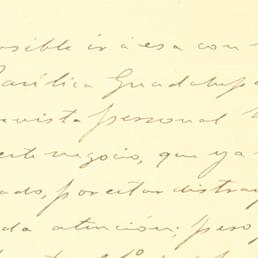 osible ir á esa con
Basílica Guadalupa
revista personal
este negocio, que ya
ado, por estar distra
da atención; pero